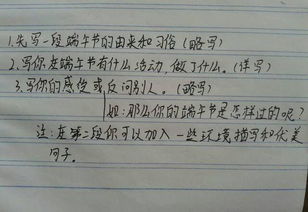 1.先写一段端午节的由来和习俗(略写)
2.写你在端午节有什么活动,做了什么。(详写)
3.写你的感受或反问别人。(略写)
如:那么你的端午节是怎样过的呢?
注:在第二段你可以加入一些环境描写和优美
句子。